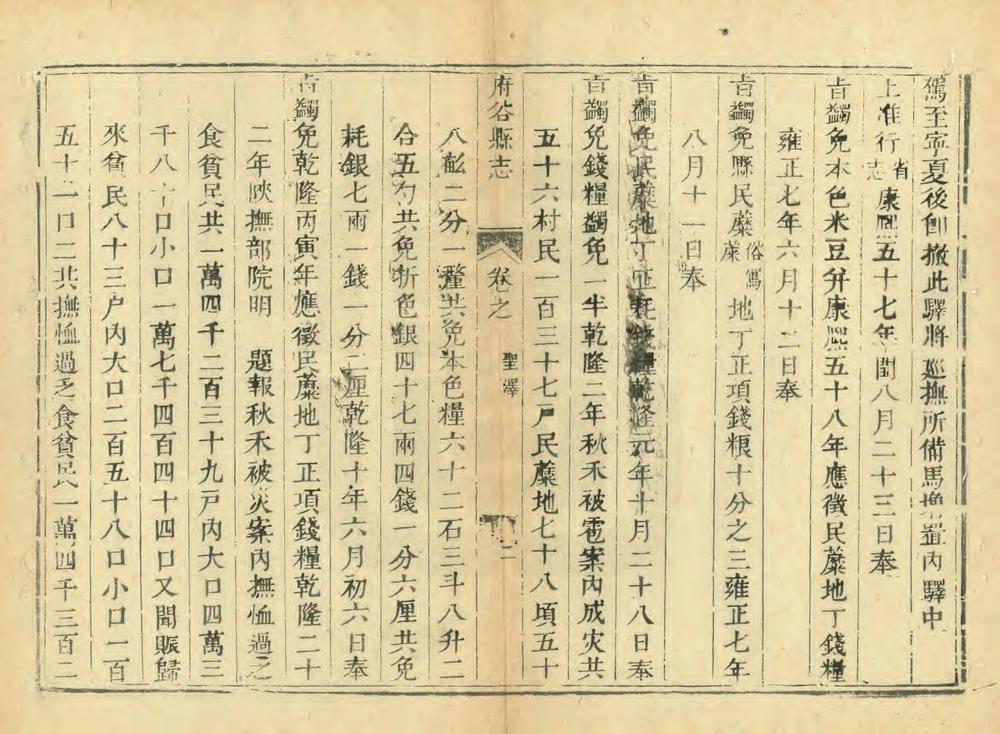 駕至寧夏後卽撤此驛將廵撫所備馬增置內驛中
上准行省志康熙五十七年閏八月二十三日奉
旨蠲免本色米豆并康熙五十八年應徵民䕷地丁錢糧
雍正七年六月十二日奉
旨蠲免縣民䕷俗寫䕷地丁正項錢粮十分之三雍正七年
八月十一日奉
旨蠲免民䕷地丁正耗錢糧乾隆元年十月二十八日奉
旨蠲免錢糧蠲免一半乾隆二年秋禾被雹案內成灾共
五十六村民一百三十七戶民䕷地七十八頃五十
府谷縣志 卷之 聖澤 二
八畝二分一釐共免本色糧六十二石三斗八升二
合五勺共免折色銀四十七兩四錢一分六厘共免
耗銀七兩一錢一分二厘乾隆十年六月初六日奉
旨蠲免乾隆丙寅年應徵民䕷地丁正項錢糧乾隆二十
二年陝撫部院明 題報秋禾被災案內撫恤過乏
食貧民共一萬四千二百三十九戶內大口四萬三
千八十口小口一萬七千四百四十四口又聞賑歸
來貧民八十三户內大口二百五十八口小口一百
五十二口二共撫恤過乏食貧民一萬四千三百二